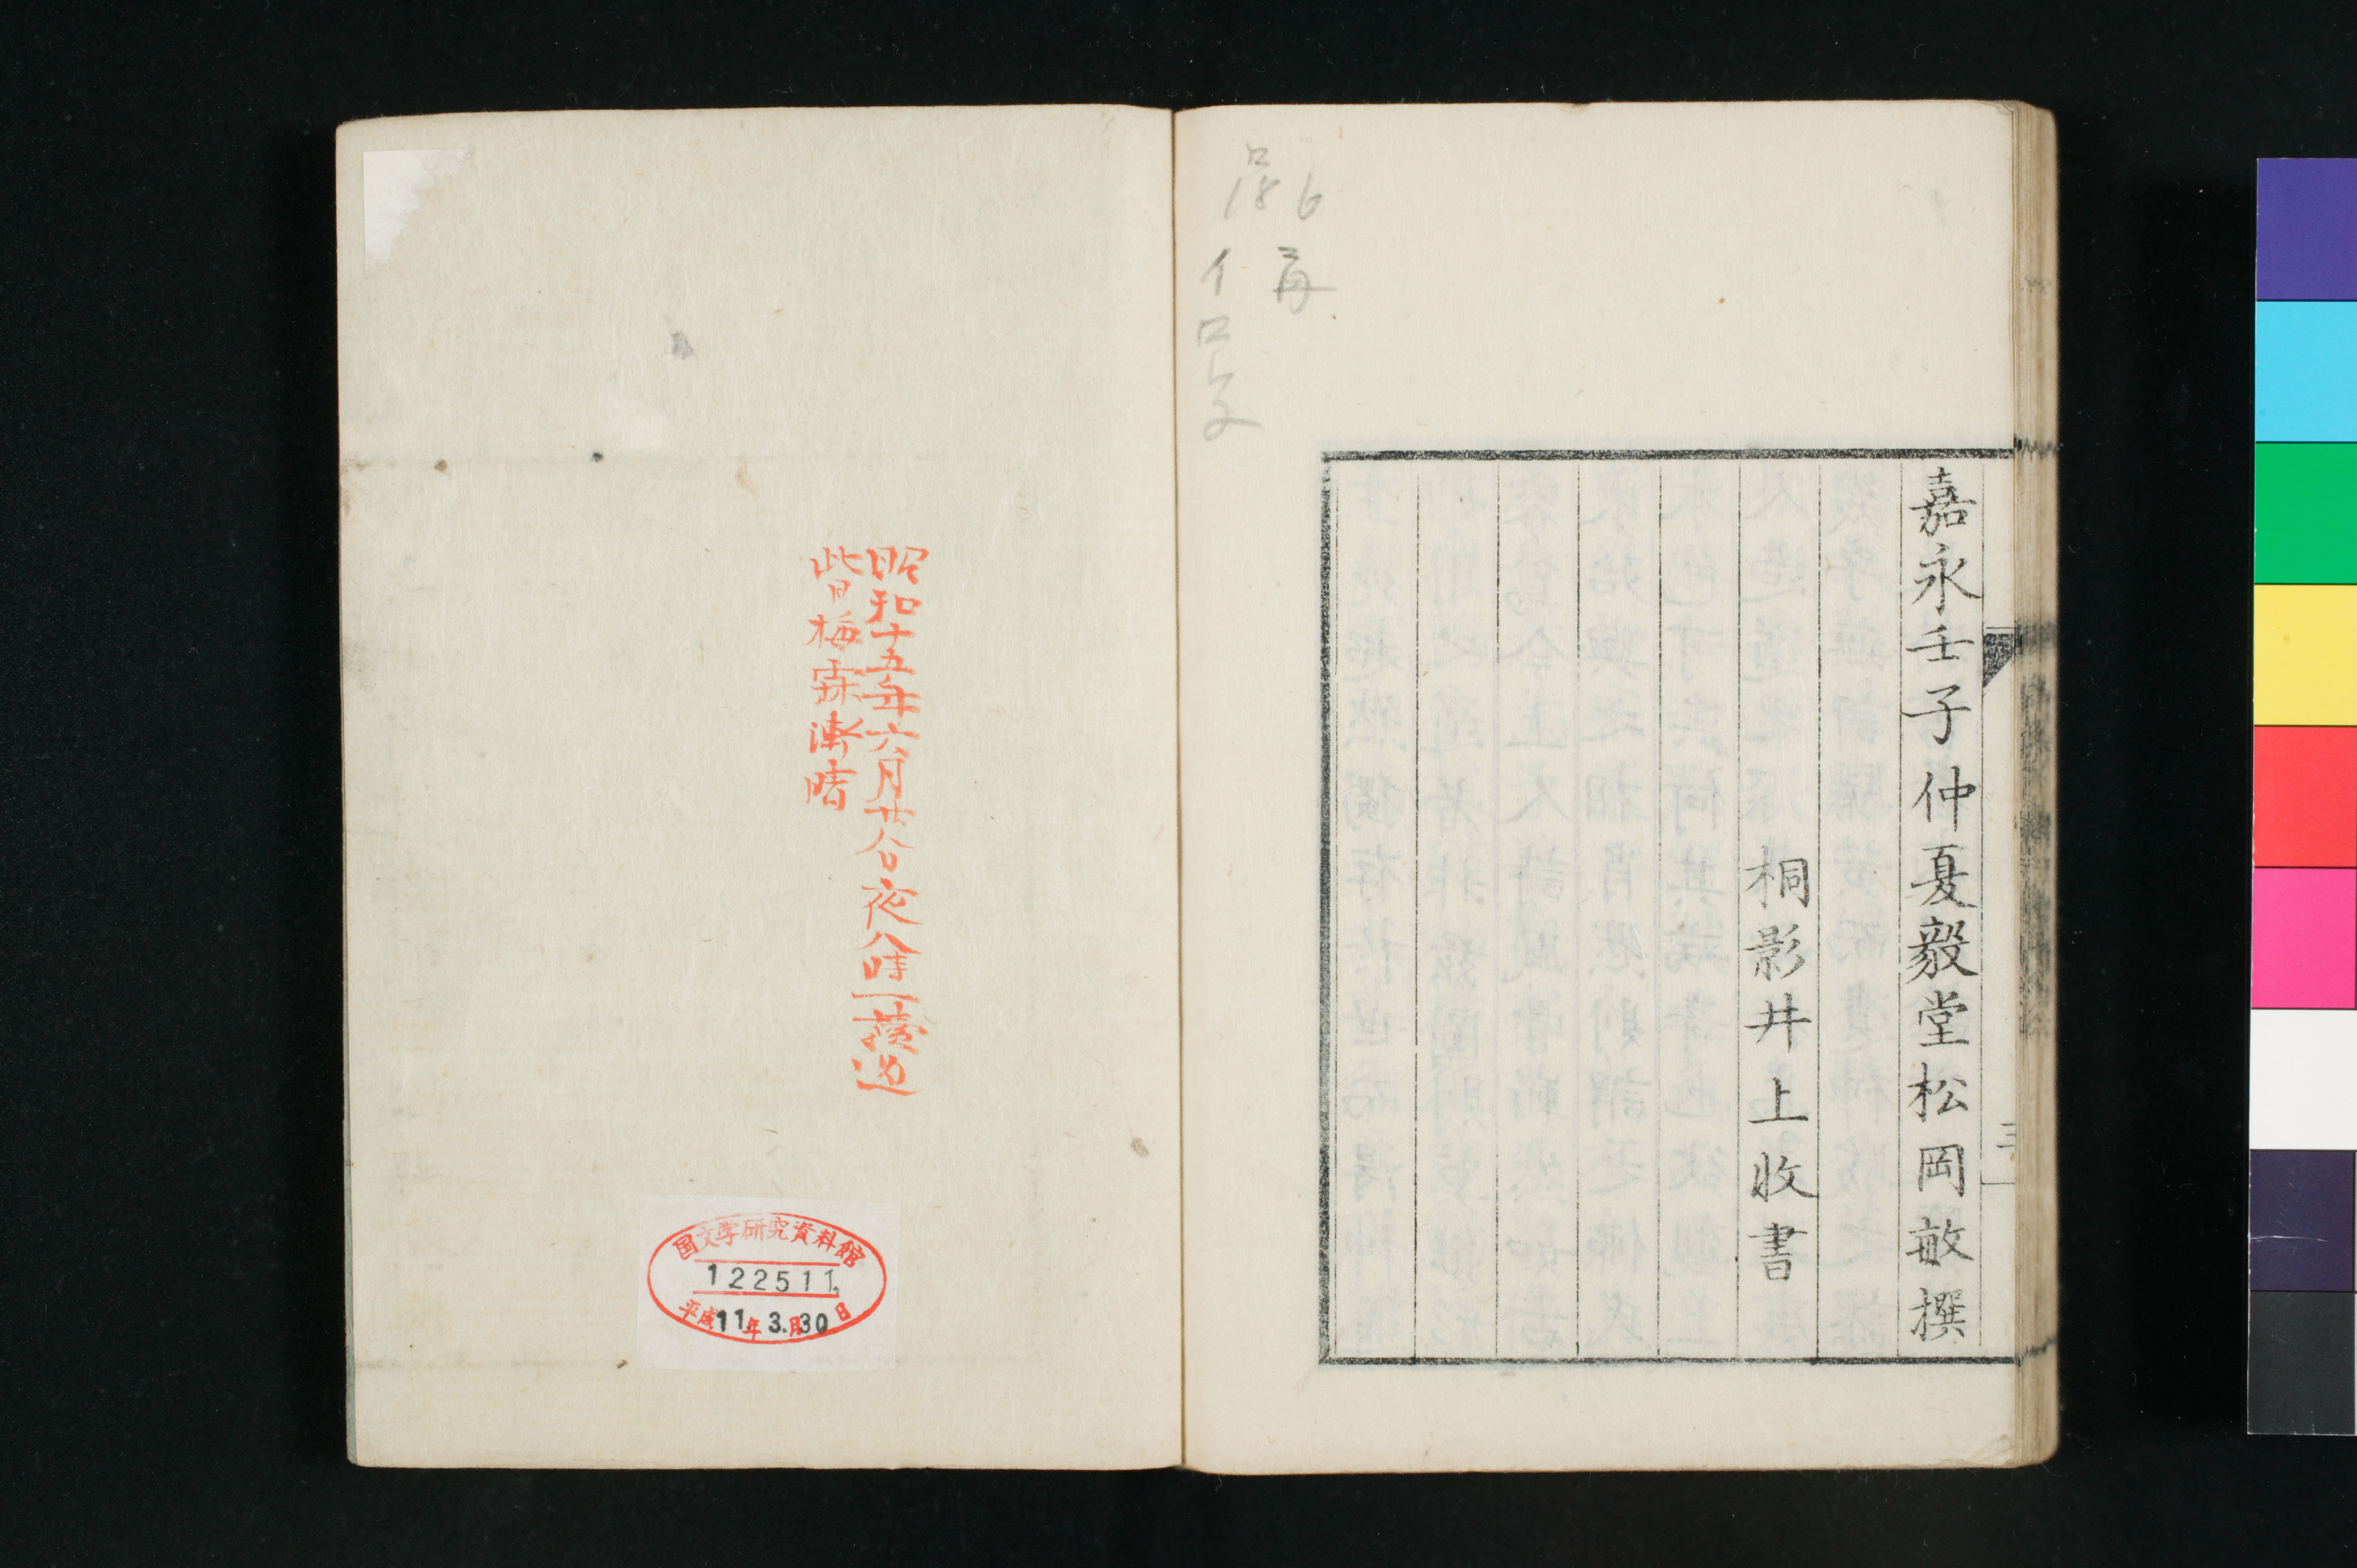 嘉永壬子仲夏毅堂松岡敏撰
桐影井上收書
三
昭和十五年六月廿八日夜八時一讀過
此日梅霖漸晴
国文学研究資料館
122511
平成11年3.月30日